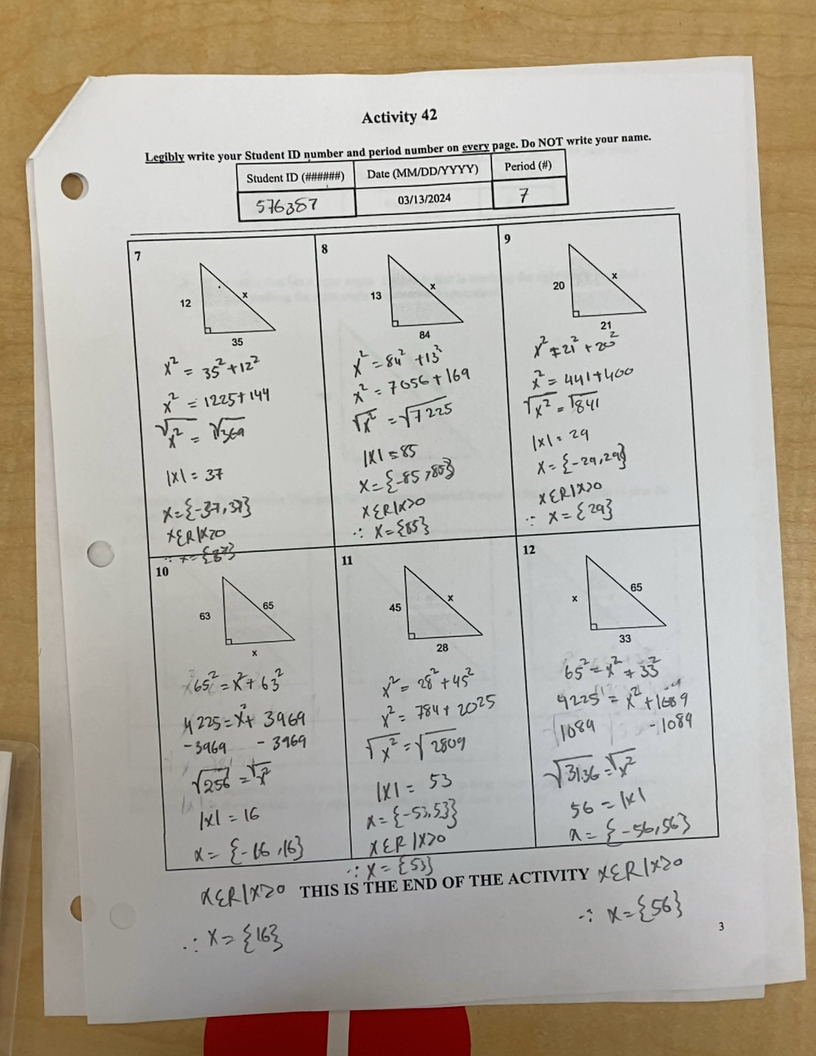 Activity 42
Legibly write your Student ID number and period number on every page. Do NOT write your name.
Student ID (######) Date (MM/DD/YYYY) Period (#)
576387 03/13/2024 7
7
12
x
35
x² = 35² + 12²
x² = 1225 + 144
√x² = √369
|x| = 37
x = {-37, 37}
x ε R | x > 0
8
13
x
84
x² = 84² + 13²
x² = 7056 + 169
√x² = √7225
|x| = 85
x = {-85, 85}
x ε R | x > 0
∴ x = {85}
9
20
x
21
x² = 21² + 20²
x² = 441 + 400
√x² = √841
|x| = 29
x = {-29, 29}
x ε R | x > 0
∴ x = {29}
10
63
65
x
65² = x² + 63²
4225 = x² + 3969
-3969 - 3969
√256 = √x²
|x| = 16
x = {-16, 16}
x ε R | x > 0
∴ x = {16}
11
45
x
28
x² = 28² + 45²
x² = 784 + 2025
√x² = √2809
|x| = 53
x = {-53, 53}
x ε R | x > 0
∴ x = {53}
12
x
65
33
65² = x² + 33²
4225 = x² + 1089
1089 - 1089
√3136 = √x²
56 = |x|
x = {-56, 56}
x ε R | x > 0
∴ x = {56}
THIS IS THE END OF THE ACTIVITY
3